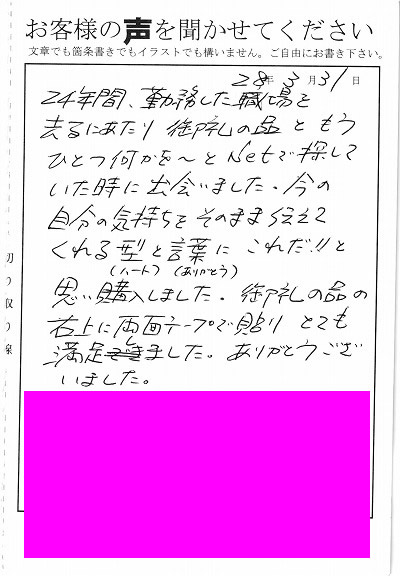 お客様の声を聞かせてください
文章でも箇条書きでもイラストでも構いません。ご自由にお書き下さい。
28年3月31日
24年間、勤務した職場を
去るにあたり御礼の品ともう
ひとつ何かを〜とNetで探して
いた時に出会いました。今の
自分の気持ちをそのまま伝えて
くれる型と言葉にこれだ!!と
(ハート) (ありがとう)
思い購入しました。御礼の品の
右上に両面テープで貼りとても
満足しました。ありがとうござ
いました。
切り取り線